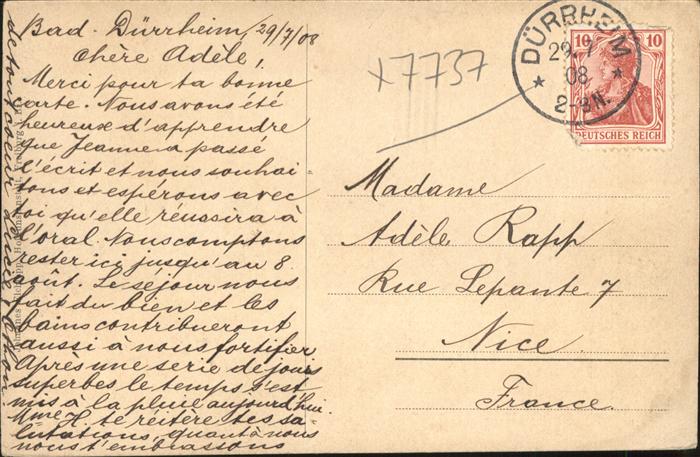 Bad-Dürrheim, 29/7/08
Chère Adèle,
Merci pour ta bonne
carte. Nous avons été
heureux d'apprendre
que Jeanne a passé
l'écrit et nous souhai
tons et espérons avec
toi qu'elle reussira à
l'oral. Nous comptons
rester ici jusqu'au 8
août. Le séjour nous
fait du bien et les
bains contribueront
aussi à nous fortifier
Après une serie de jours
superbes le temps s'est
mis à la pluie aujourd'hui.
Mme H. te reitère ses sa-
lutations, quant à nous
nous t'embrassons
de tout coeur
x7737
DÜRRHEIM
29. 7
08
2-8 N.
10 10
DEUTSCHES REICH
Madame
Adèle Rapp
Rue Lepante 7
Nice
France.